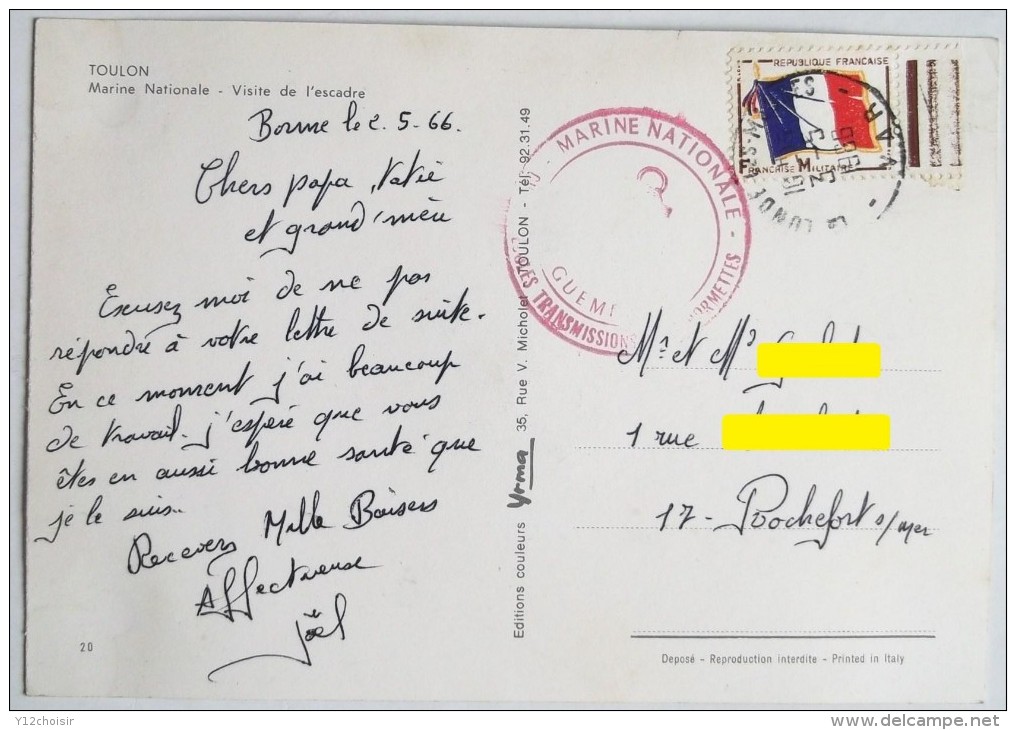 TOULON
Marine Nationale - Visite de l'escadre
Borme le 2.5-66.
Chers papa,
et grand'mère
Excusez moi de ne pas
répondre à votre lettre de suite.
En ce moment j'ai beaucoup
de travail. j'espère que vous
êtes en aussi bonne santé que
je le suis..
Recevers Mille Baisers
Affectueuse
Joël
20
Editions couleurs Yrma 35, Rue V. Micholet - TOULON - Tél. 92.31.49
MARINE NATIONALE -
GUEME
LES TRANSMISSIONS
BORMETTES
REPUBLIQUE FRANÇAISE
FRANCHISE MILITAIRE
LA LONDE
VAR
Mr et Me
1 rue
17 - Rochefort s/mer
Deposé - Reproduction interdite - Printed in Italy
Y12choisir
delcampe.net